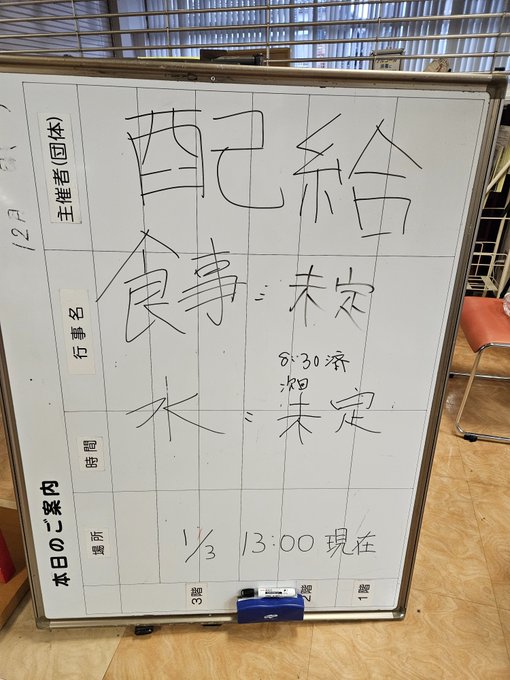 配給
食事：未定
8:30済
次回
水：未定
1/3 13:00 現在
本日のご案内
主催者(団体)
行事名
時間
場所
3階
2階
1階
12月